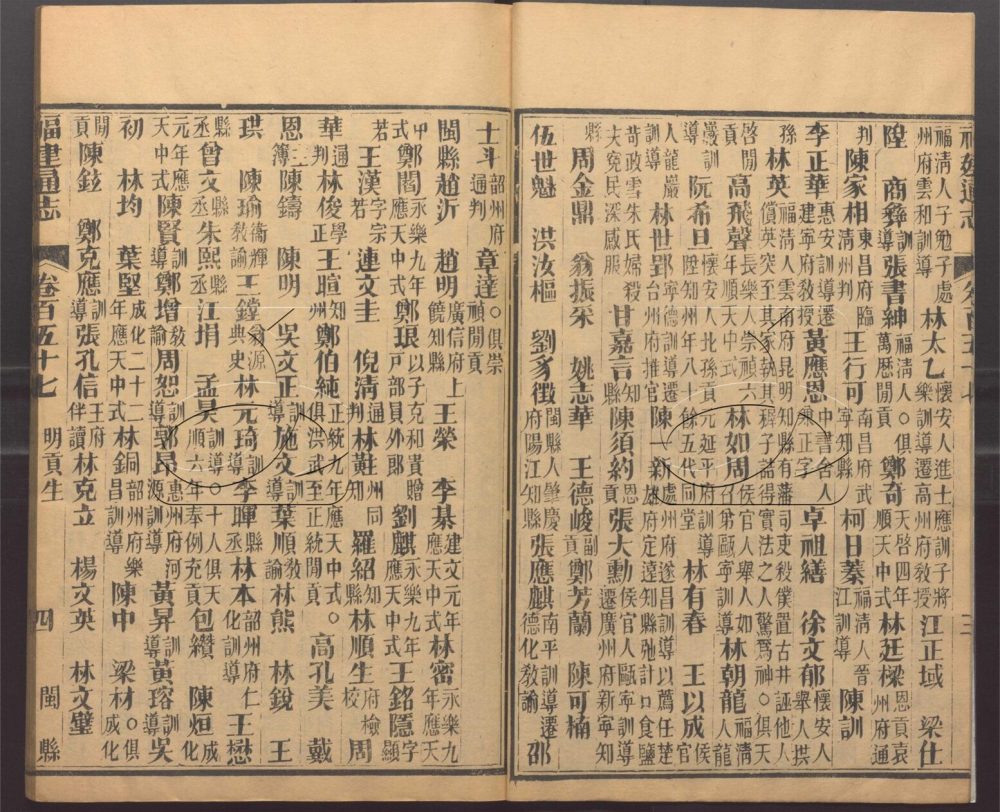 福清人子勉子處州府雲和訓導 林太乙懷安人進士應訓子將樂訓導遷高州府教授 江正域 梁仕
陞 商彝訓導 張書紳福清人。俱萬曆閒貢 鄭奇天啓四年順天中式 林廷樑恩貢袁州府通
判 陳家相東昌府臨清州判 王行可南昌府武寧知縣 柯日蓁福清晉江訓導 陳訓
李正華惠安訓導遷建寧府教授 黃應恩中書舍人 正字 卓祖繕 徐文郁懷安人
孫 林英福清人雲南府昆明知縣有藩司吏殺僕置古井誣他人償英突至其家執其稺子詰得實法之人驚爲神。俱天
啓閒貢 高飛聲長樂人崇禎六年順天中式 林如周侯官人舉人如召弟甌寧訓導 林朝龍福清人龍
巖訓導 阮希旦懷安人 年八十餘五代同堂 林有春 王以成侯官
人龍巖訓導 林世郢 台州府推官 陳一新處州府遂昌訓導以薦任楚雄府定遠知縣 計口食鹽
苛政雪朱氏婦殺夫寃民深感服 甘嘉言知縣 陳須約恩貢 張大勳侯官人甌寧訓導遷廣州府新寧知
縣 周金鼎 翁振采 姚志華 王德峻副貢 鄭芳蘭 陳可楠
伍世魁 洪汝樞 劉豸徵閩縣人肇慶府陽江知縣 張應麒南平訓導遷德化教諭 邵
士斗韶州府通判 章達。俱崇禎閒貢
閩縣趙沂 趙明廣信府上饒知縣 王榮 李綦建文元年應天中式 林密永樂九年應天
中式 鄭閣永樂九年應天中式 鄭珢以子克和貴贈戶部員外郎 劉麒永樂九年應天中式 王銘隱字顯
若 王漢字宗若 連文圭 倪清通判 林黈知州同 羅紹知縣 林順生府檢校 周
華通判 林俊學正 王暄知州 鄭伯純正統九年應天中式。俱洪武至正統閒貢 高孔美 戴
恩三簿 陳鑄 陳明 吳文正訓導 施文訓導 葉順教諭 林熊 林銳 王
珙 陳瑜衞輝教諭 王鏜翁源典史 林元琦訓導 李暉縣丞 林本韶州府仁化訓導 王懋
縣丞 曾文縣丞 朱熙縣丞 江捐 孟昊訓導。十人俱天順六年奉例充貢 包纘 陳烜成化
元年應天中式 陳賢訓導 鄭增教諭 周恕訓導 郭昂惠州府河源訓導 黃昇訓導 黃瑢訓導 吳
初 林均 葉堅成化二十二年應天中式 林銅韶州府樂昌訓導 陳中 梁材。俱成化
閒貢 陳鉉 鄭克應訓導 張孔信王府伴讀 林克立 楊文英 林文璧
福建通志 卷百五十七 明貢生 四 閩縣